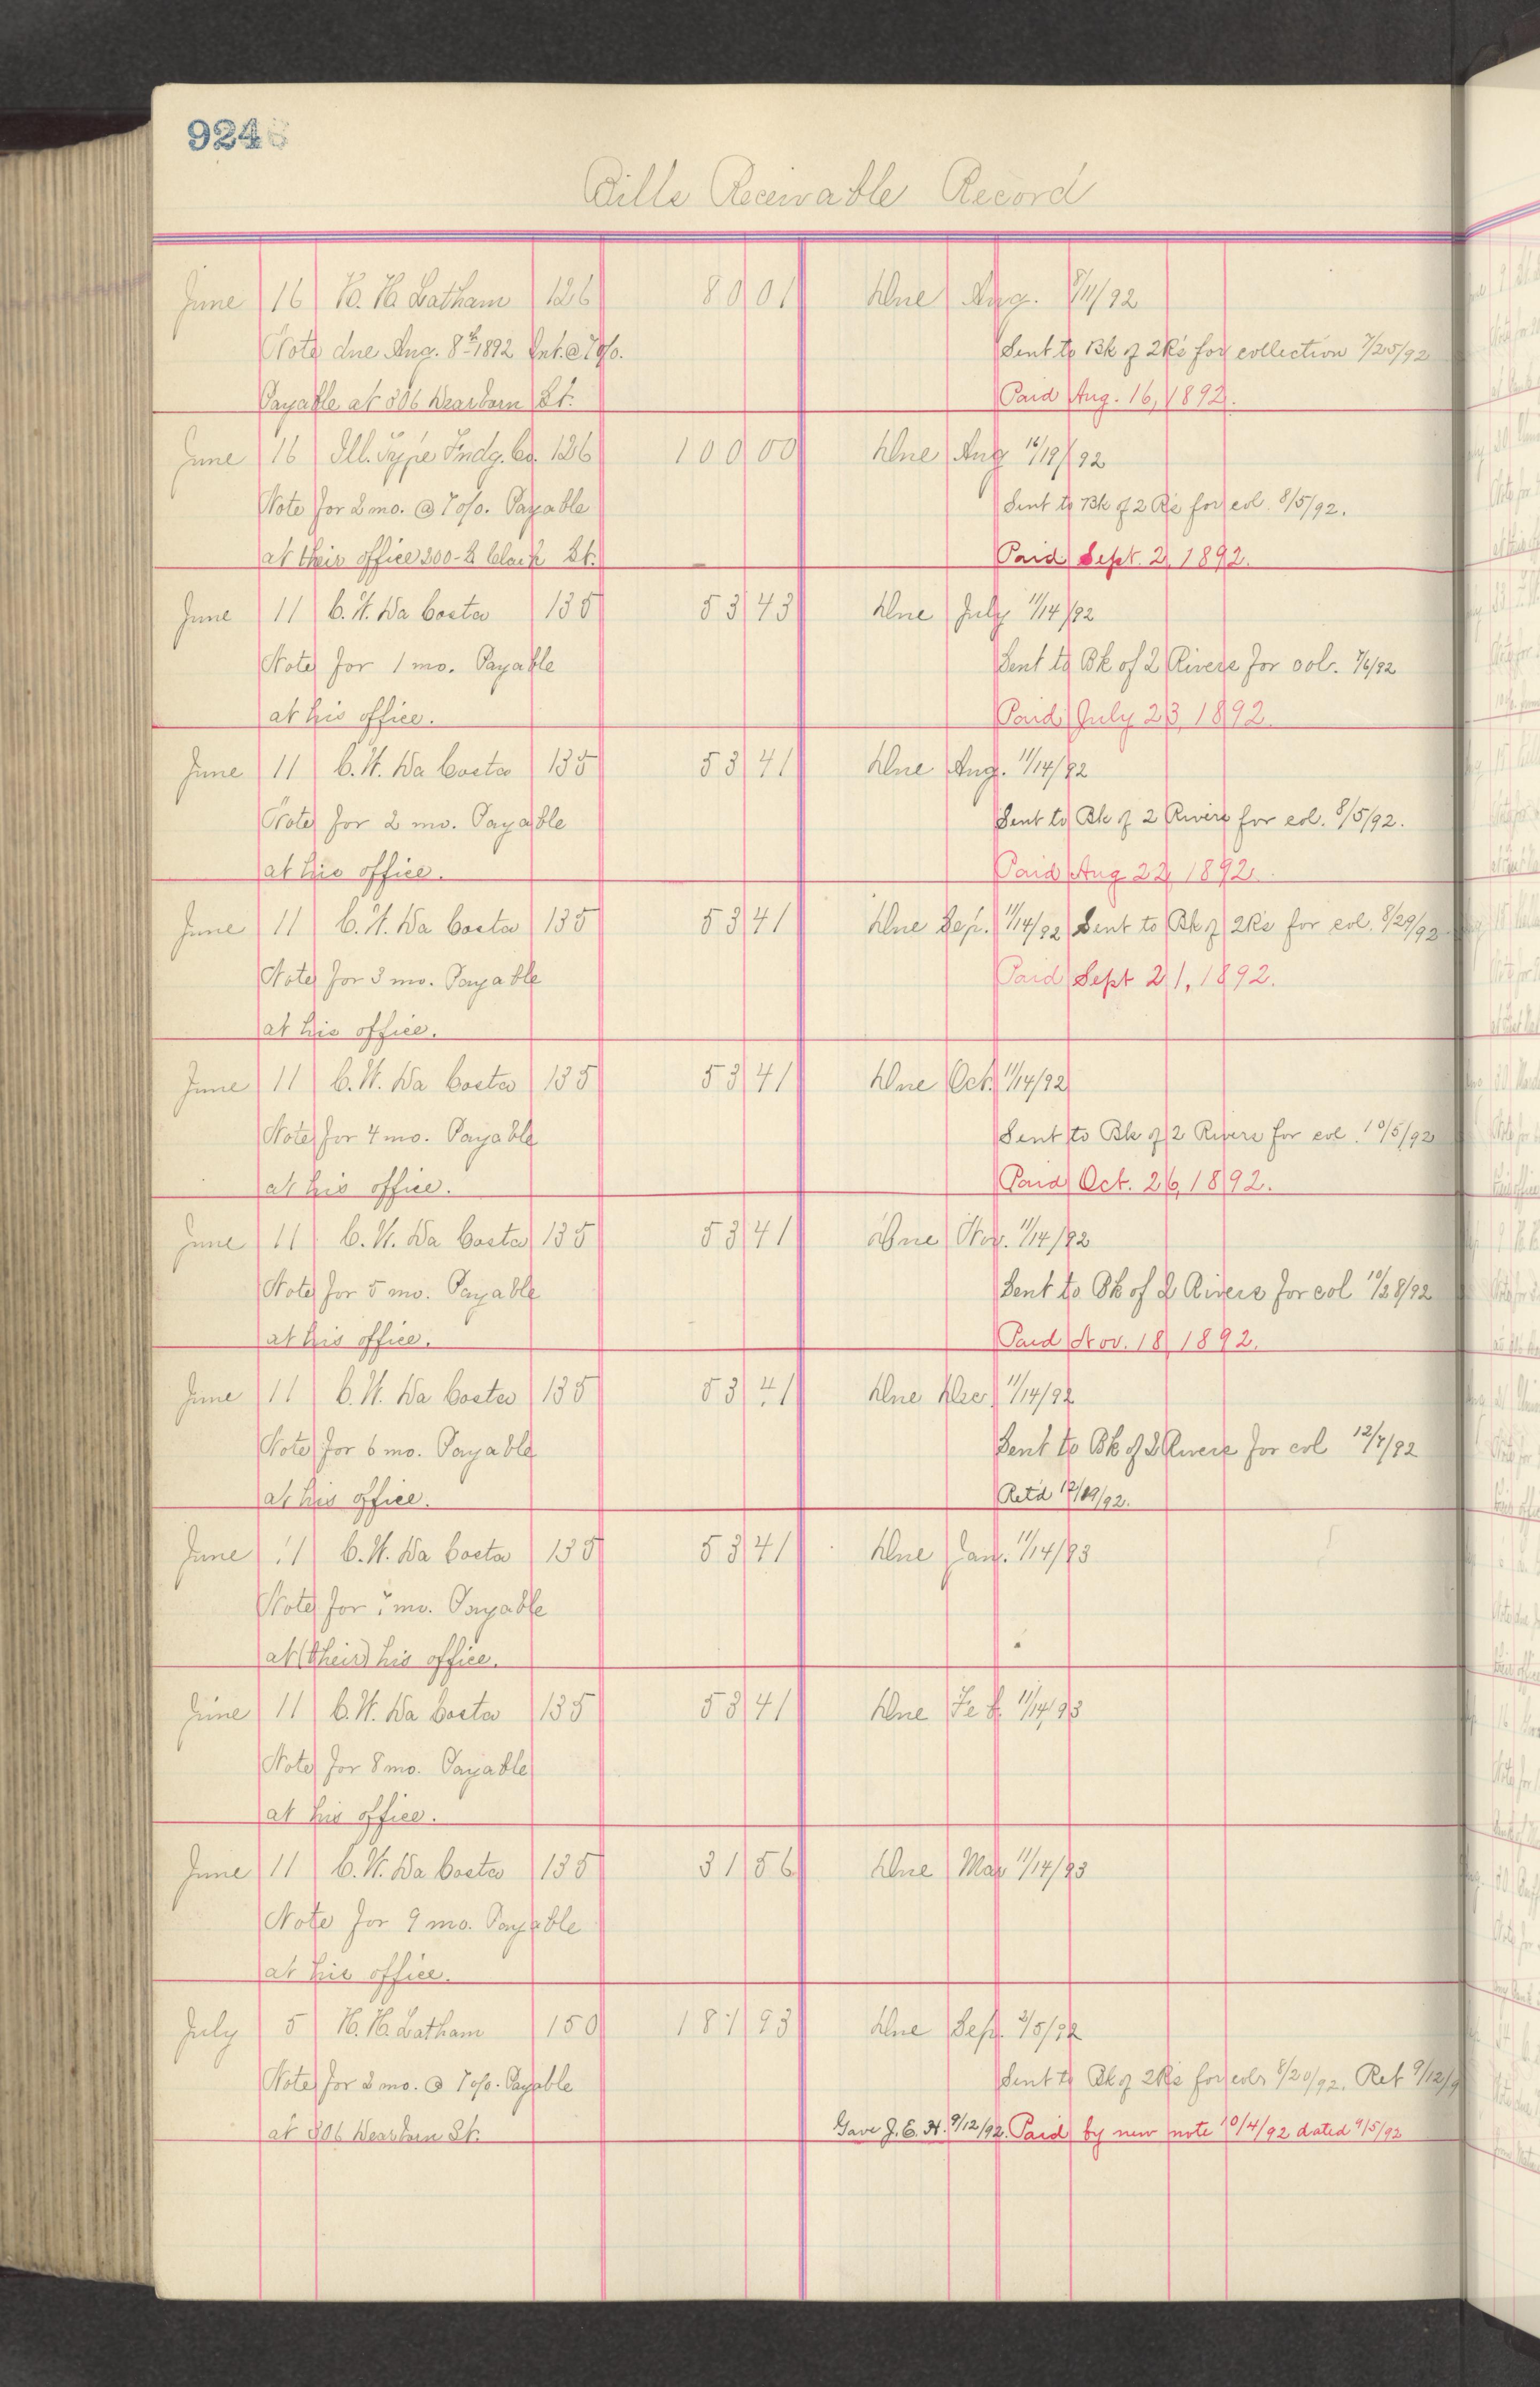 924
Bills Receivable Record
June 16 H. H. Latham 126 80 01 Due Aug. 8/11/92
Note due Aug. 8th 1892 Int. @ 7 o/o. Sent to Bk of 2 Rs for collection 7/25/92
Payable at 306 Dearborn St. Paid Aug. 16, 1892.
June 16 Ill. Type Fndg. Co. 126 100 00 Due Aug 16/19/92
Note for 2 mo. @ 7 o/o. Payable Sent to Bk of 2 Rs for col. 8/5/92.
at their office 200-2 Clark St. Paid Sept. 2, 1892.
June 11 C. W. Da Costa 135 53 43 Due July 11/14/92
Note for 1 mo. Payable Sent to Bk of 2 Rivers for col. 7/6/92
at his office. Paid July 23, 1892.
June 11 C. W. Da Costa 135 53 41 Due Aug. 11/14/92
Note for 2 mo. Payable Sent to Bk of 2 Rivers for col. 8/5/92.
at his office. Paid Aug 22, 1892.
June 11 C. W. Da Costa 135 53 41 Due Sep. 11/14/92 Sent to Bk of 2 Rs for col. 8/29/92
Note for 3 mo. Payable Paid Sept 21, 1892.
at his office.
June 11 C. W. Da Costa 135 53 41 Due Oct. 11/14/92
Note for 4 mo. Payable Sent to Bk of 2 Rivers for col. 10/5/92
at his office. Paid Oct. 26, 1892.
June 11 C. W. Da Costa 135 53 41 Due Nov. 11/14/92
Note for 5 mo. Payable Sent to Bk of 2 Rivers for col 10/28/92
at his office. Paid Nov. 18, 1892.
June 11 C. W. Da Costa 135 53 41 Due Dec. 11/14/92
Note for 6 mo. Payable Sent to Bk of 2 Rivers for col 12/7/92
at his office. Retd 12/19/92.
June 11 C. W. Da Costa 135 53 41 Due Jan. 11/14/93
Note for 7 mo. Payable
at (their) his office.
June 11 C. W. Da Costa 135 53 41 Due Feb. 11/14/93
Note for 8 mo. Payable
at his office.
June 11 C. W. Da Costa 135 31 56 Due Mar 11/14/93
Note for 9 mo. Payable
at his office.
July 5 H. H. Latham 150 187 93 Due Sep.
Note for 2 mo. @ 7 o/o. Payable Sent to Bk of 2 Rs for col. 8/20/92. Ret 9/12/9
at 306 Dearborn St. Gave J. E. H. 9/12/92. Paid by new note 10/4/92 dated 9/5/92